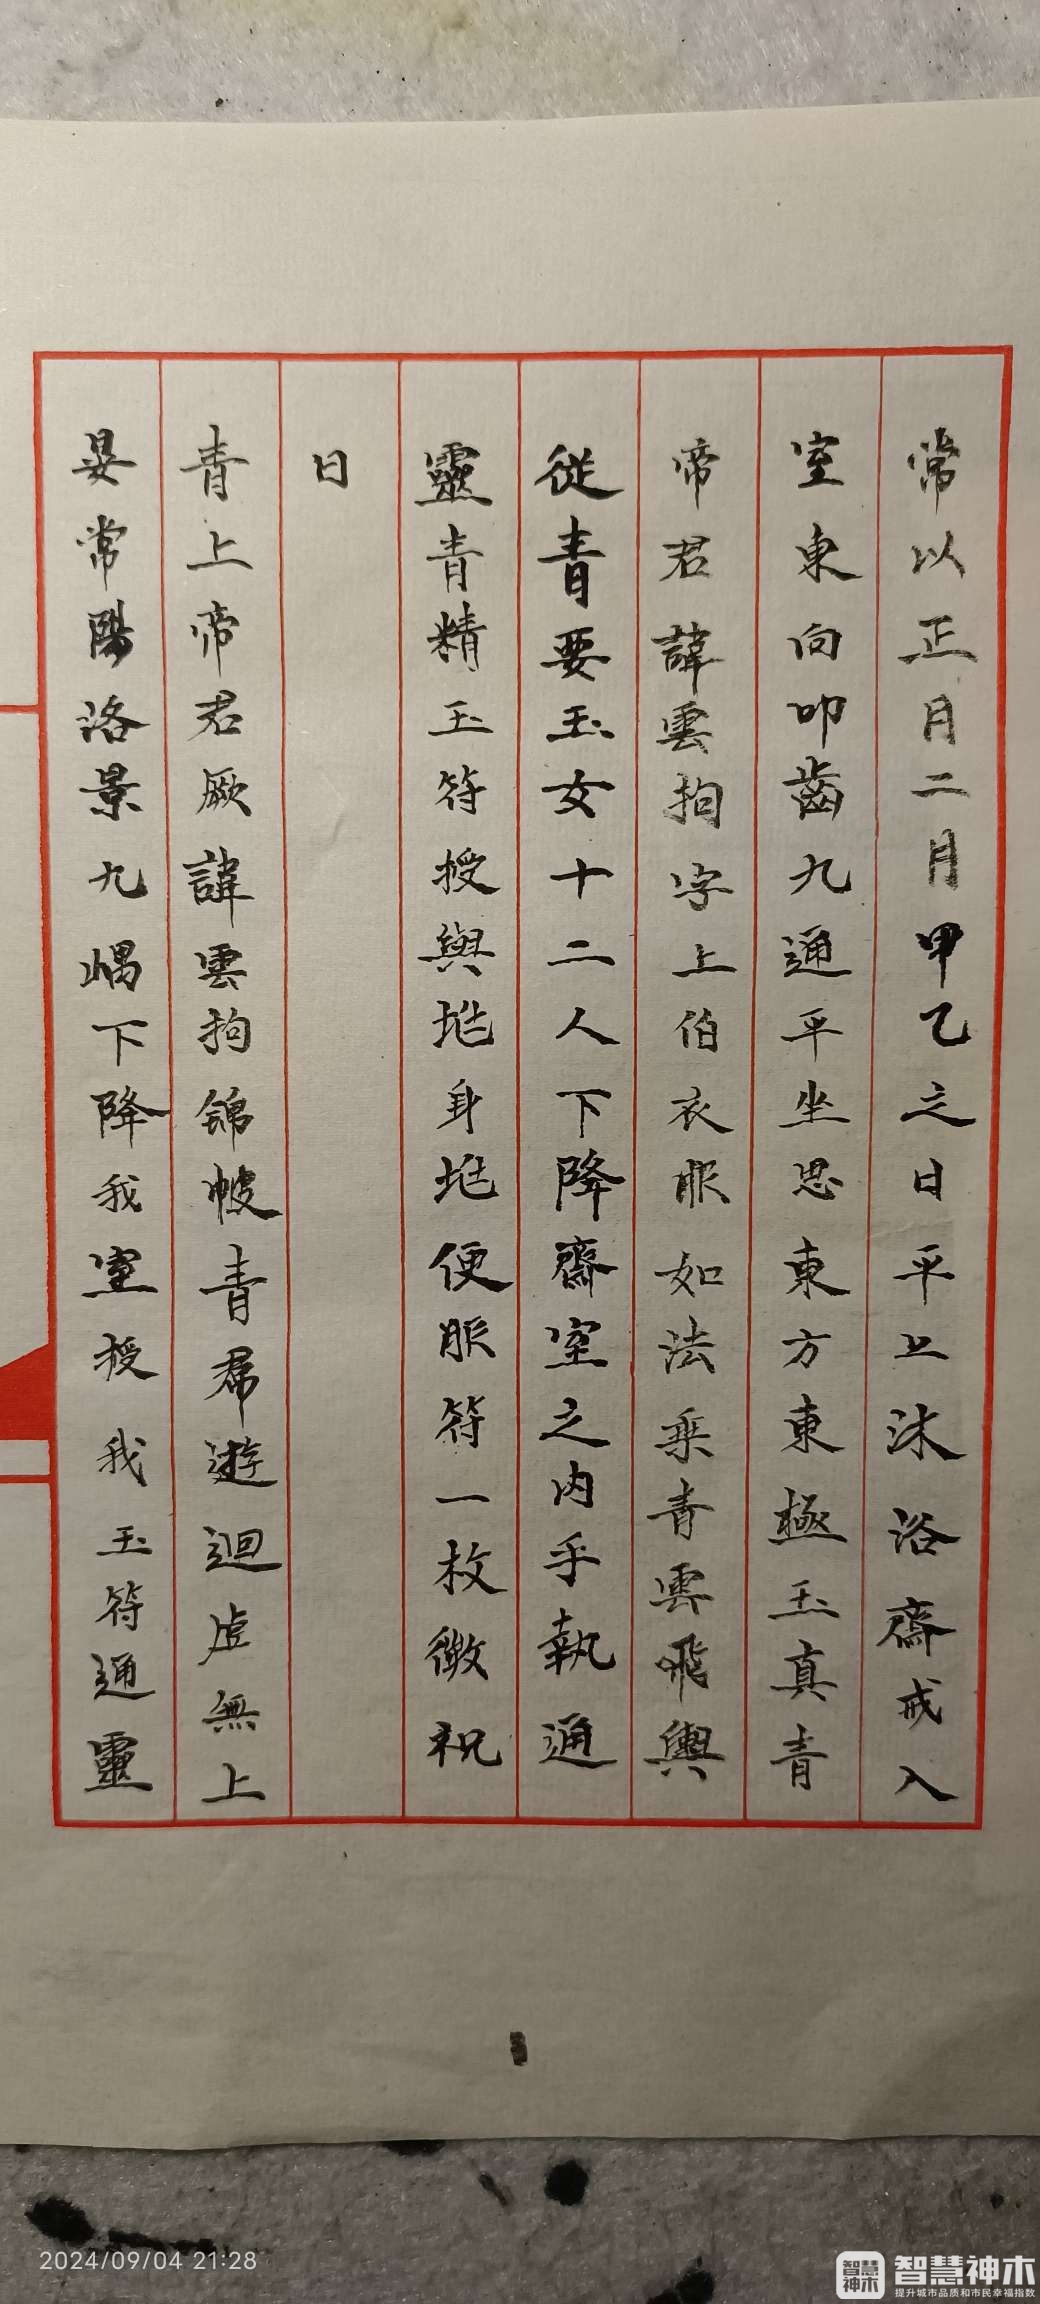 常以正月二月甲乙之日平旦沐浴齋戒入
室東向叩齒九通平坐思東方東極玉真青
帝君諱雲拘字上伯衣服如法乘青雲飛輿
從青要玉女十二人下降齋室之内手執通
靈青精玉符授與兆身兆便服符一枚微祝
曰
青上帝君厥諱雲拘錦帔青帬遊迴虛無上
晏常陽洛景九嵎下降我室授我玉符通靈
2024/09/04 21:28
智慧神木
智慧神木
提升城市品质和市民幸福指数